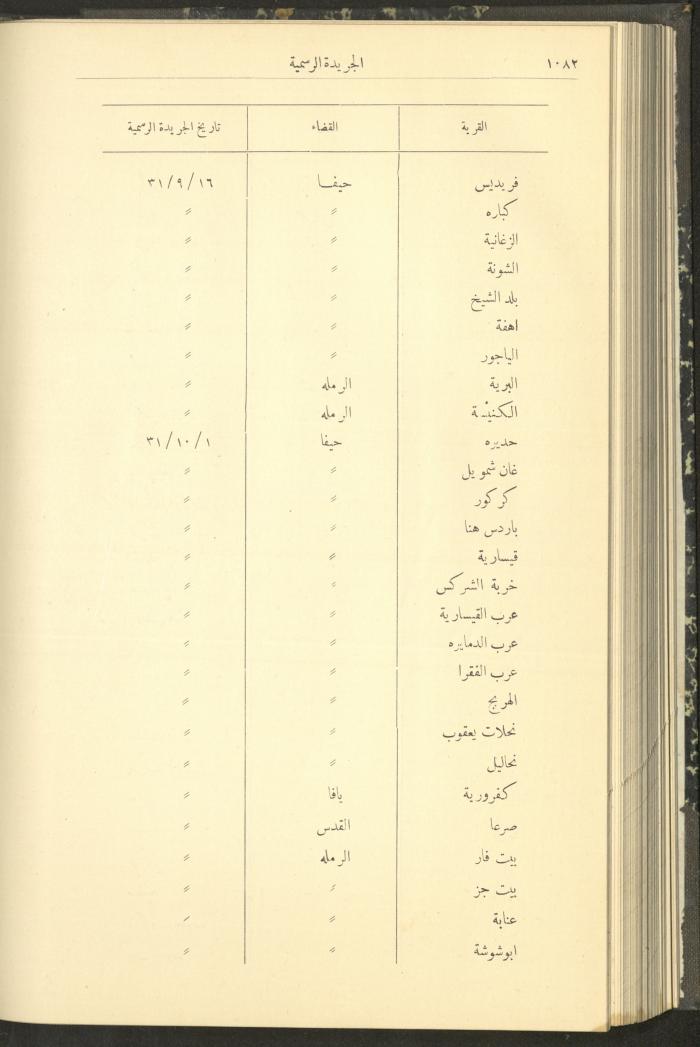 ١٠٨٢ الجريدة الرسمية
القرية القضاء تاريخ الجريدة الرسمية
فريديس حيفا ٣١/٩/١٦
كباره〃〃
الزغانية〃〃
الشونة〃〃
بلد الشيخ〃〃
اهفة〃〃
الياجور〃〃
البرية الرمله〃
الكنيسة الرمله〃
حديره حيفا ٣١/١٠/١
غان شمويل〃〃
كركور〃〃
باردس هنا〃〃
قيسارية〃〃
خربة الشركس〃〃
عرب القيسارية〃〃
عرب الدمايره〃〃
عرب الفقرا〃〃
الهريج〃〃
نحلات يعقوب〃〃
نحاليل〃〃
كفرورية يافا〃
صرعا القدس〃
بيت فار الرمله〃
بيت جز〃〃
عنابة〃〃
ابوشوشة〃〃